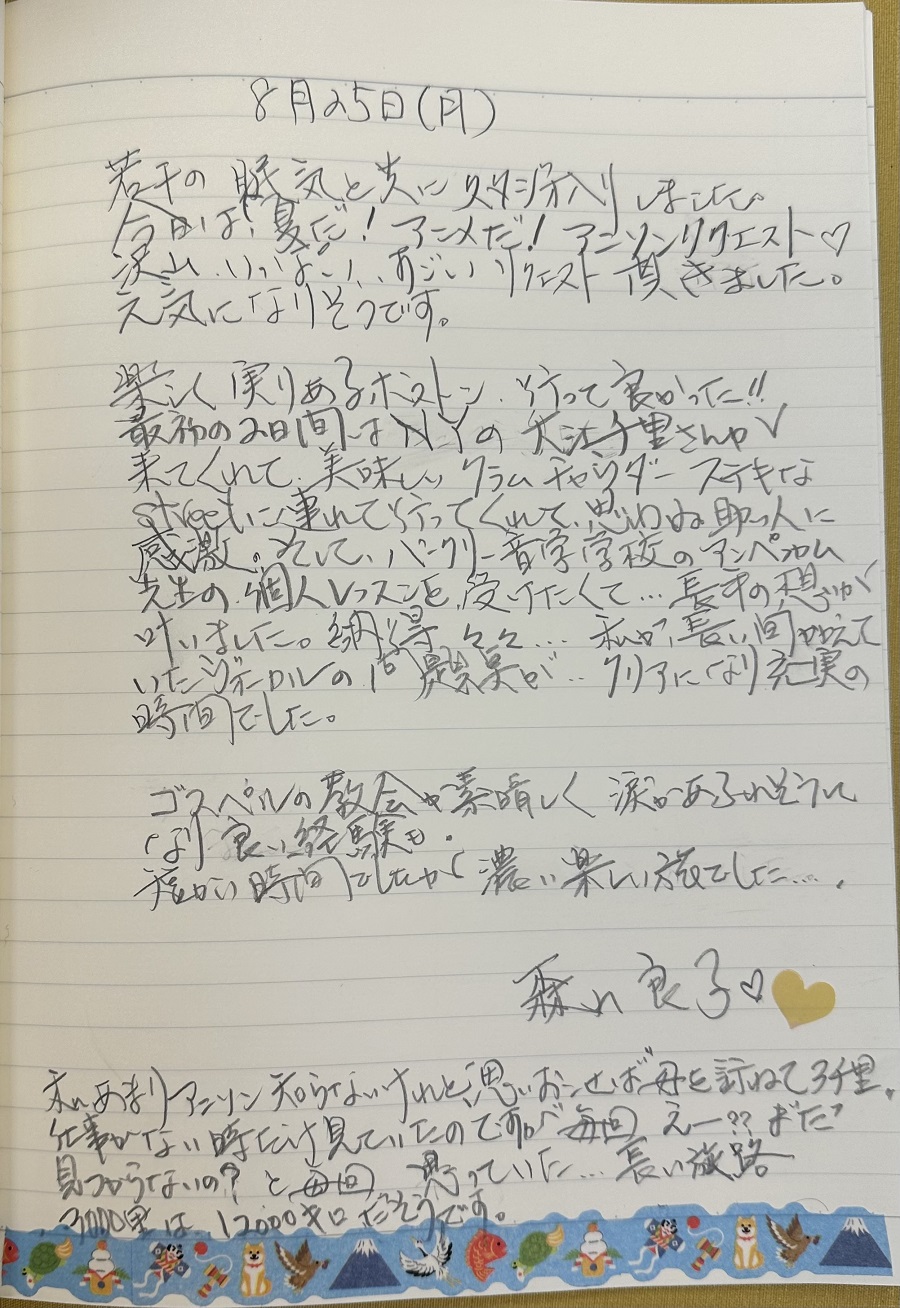 8月25日(月)
若干の眠気と共にスタジオ入りしました。
今日は「夏だ!アニメだ!アニソンリクエスト♡
沢山、いっぱい、すごいリクエスト頂きました。
元気になりそうです。
楽しく実りあるボストン、行って良かった!!
最初の2日間はNYの大江千里さんが
来てくれて、美味しいクラムチャウダー ステキな
streetに連れて行ってくれて、思わぬ助っ人に
感激。そして、バークリー音楽学校のアンペカム
先生の個人レッスンを受けたくて…長年の想いが
叶いました。納得々々…私が長い間かかえて
いたジャズボーカルの問題点が…クリアになり充実の
時間でした。
ゴスペルの教会も素晴しく 涙があふれそうに
なり 良い経験も。
短かい時間でしたが 濃い楽しい旅でした….
森山良子♡
私、あまりアニソン知らないけれど、思いおこせば「母を訪ねて3千里」
仕事がない時だけ見ていたのですが 毎回 えー??まだ
見つからないの?と毎回 思っていた…長い旅路
3000里は、12000キロだそうです。